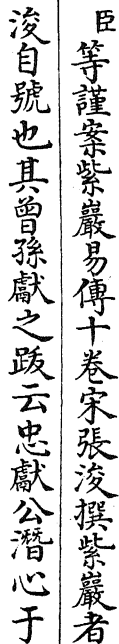 臣等謹案紫巖易傳十卷宋張浚撰紫巖者
浚自號也其曾孫獻之跋云忠獻公潛心于